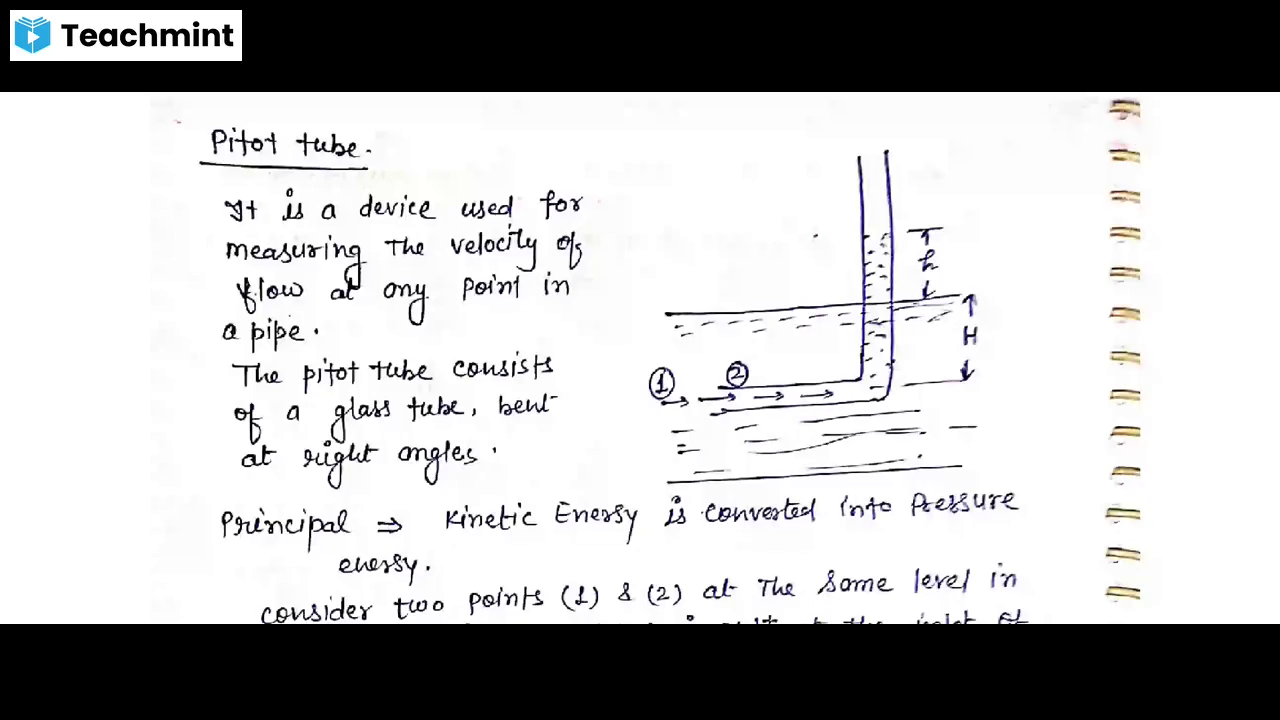 Teachmint
Pitot tube.
It is a device used for
measuring the velocity of
flow at any point in
a pipe.
The pitot tube consists
of a glass tube, bent
at right angles.
h
H
1
2
Principal ⇒ Kinetic Energy is converted into Pressure
energy.
consider two points (1) & (2) at the same level in